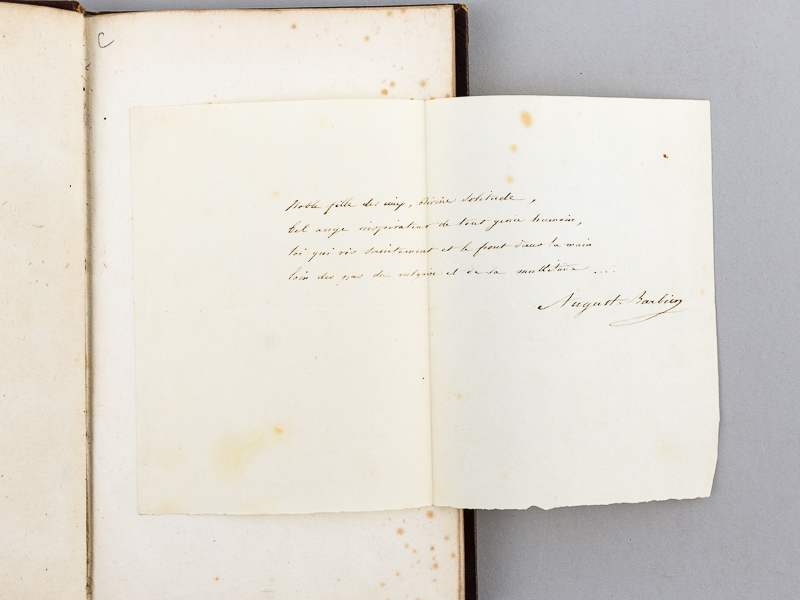 C
Noble fille des cieux, divine solitude,
bel ange inspirateur de tout genie humain,
toi qui vis saintement et le front dans la main
loin des pas du vulgaire et de sa multitude ....
August. Barbier